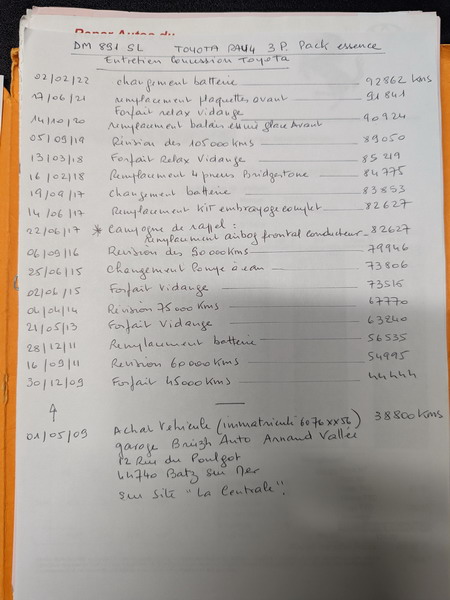 Repar Autos du
DM 891 SL TOYOTA RAV4 3 P. Pack essence
Entretien Concession Toyota
02/02/22 changement batterie 92862 kms
17/06/21 remplacement plaquettes avant 91841
Forfait relax vidange
14/10/20 remplacement balais essuie glace Avant 90924
05/09/19 Révision des 105000 kms 89050
13/03/18 Forfait Relax Vidange 85219
16/02/18 Remplacement 4 pneus Bridgestone 84775
19/09/17 changement batterie 83853
14/06/17 Remplacement KIT embrayage complet 82627
22/06/17 * Campagne de rappel :
Remplacement airbag frontal conducteur 82627
06/09/16 Revision des 90000 Kms 79946
25/06/15 Changement Pompe à eau 73806
02/06/15 Forfait Vidange 73515
04/04/14 Révision 75000 Kms 67770
21/05/13 Forfait Vidange 63240
28/12/11 Remplacement batterie 56535
16/09/11 Revision 60000 Kms 54995
30/12/09 Forfait 45000 Kms 44444
01/05/09 Achat Vehicule (immatriculé 6076 XX 56) 38800 Kms
garage Breizh Auto Arnand Vallée
12 Rue du Poulgot
44740 Batz sur Mer
sur site "La Centrale".